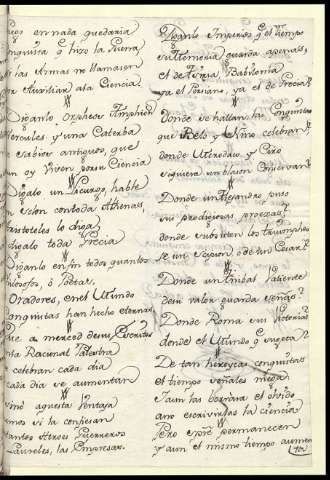 en nada quedaria
Conquista q hizo la Guerra
si las Armas no llamason
en Auxiliar a la Ciencia
Diganlo, Orpheos Amphion
Hercules y una Caterba
Sabios antiguos, que
aun oy viven por su Ciencia
Digalo un Licurgo, hable
un Solon con toda Athenas
Aristoteles lo diga
digalo toda Grecia
Diganlo en fin todos quantos
Philosofos, ò Poetas,
Oradores, en el Mundo
Conquistas han hecho eternas
Que a merced de sus Escritos
Racional Palestra
celebran cada dia
cada dia se aumentan
aquesta bentaja
si la confiesan
tantos Heroes Guerreros
Laureles, las Empresas.
Imperios q el tiempo
su memoria guarda apenas,
el de Asiria Babilonia
ya el Persiano, ya el de Grecia?
Donde se hallan las Conquistas
que Belo y Nino celebran?
donde Mitridate y Ciro
siquiera un blason conservan
Donde un Alejandro puso
sus prodigiosas proezas?
donde subsisten los triumphos
de un Scipion, o de un Cesar?
Donde un Anibal Patiente
de su valor guarda señas?
Donde Roma sus Victorias
donde el Mundo q sugeta?
De tan heroycas conquistas
el tiempo señales niega
I aun las borrara el olvido
a no escrivirlas la ciencia
Pero estas permanecen
y aun el mismo tiempo aumen